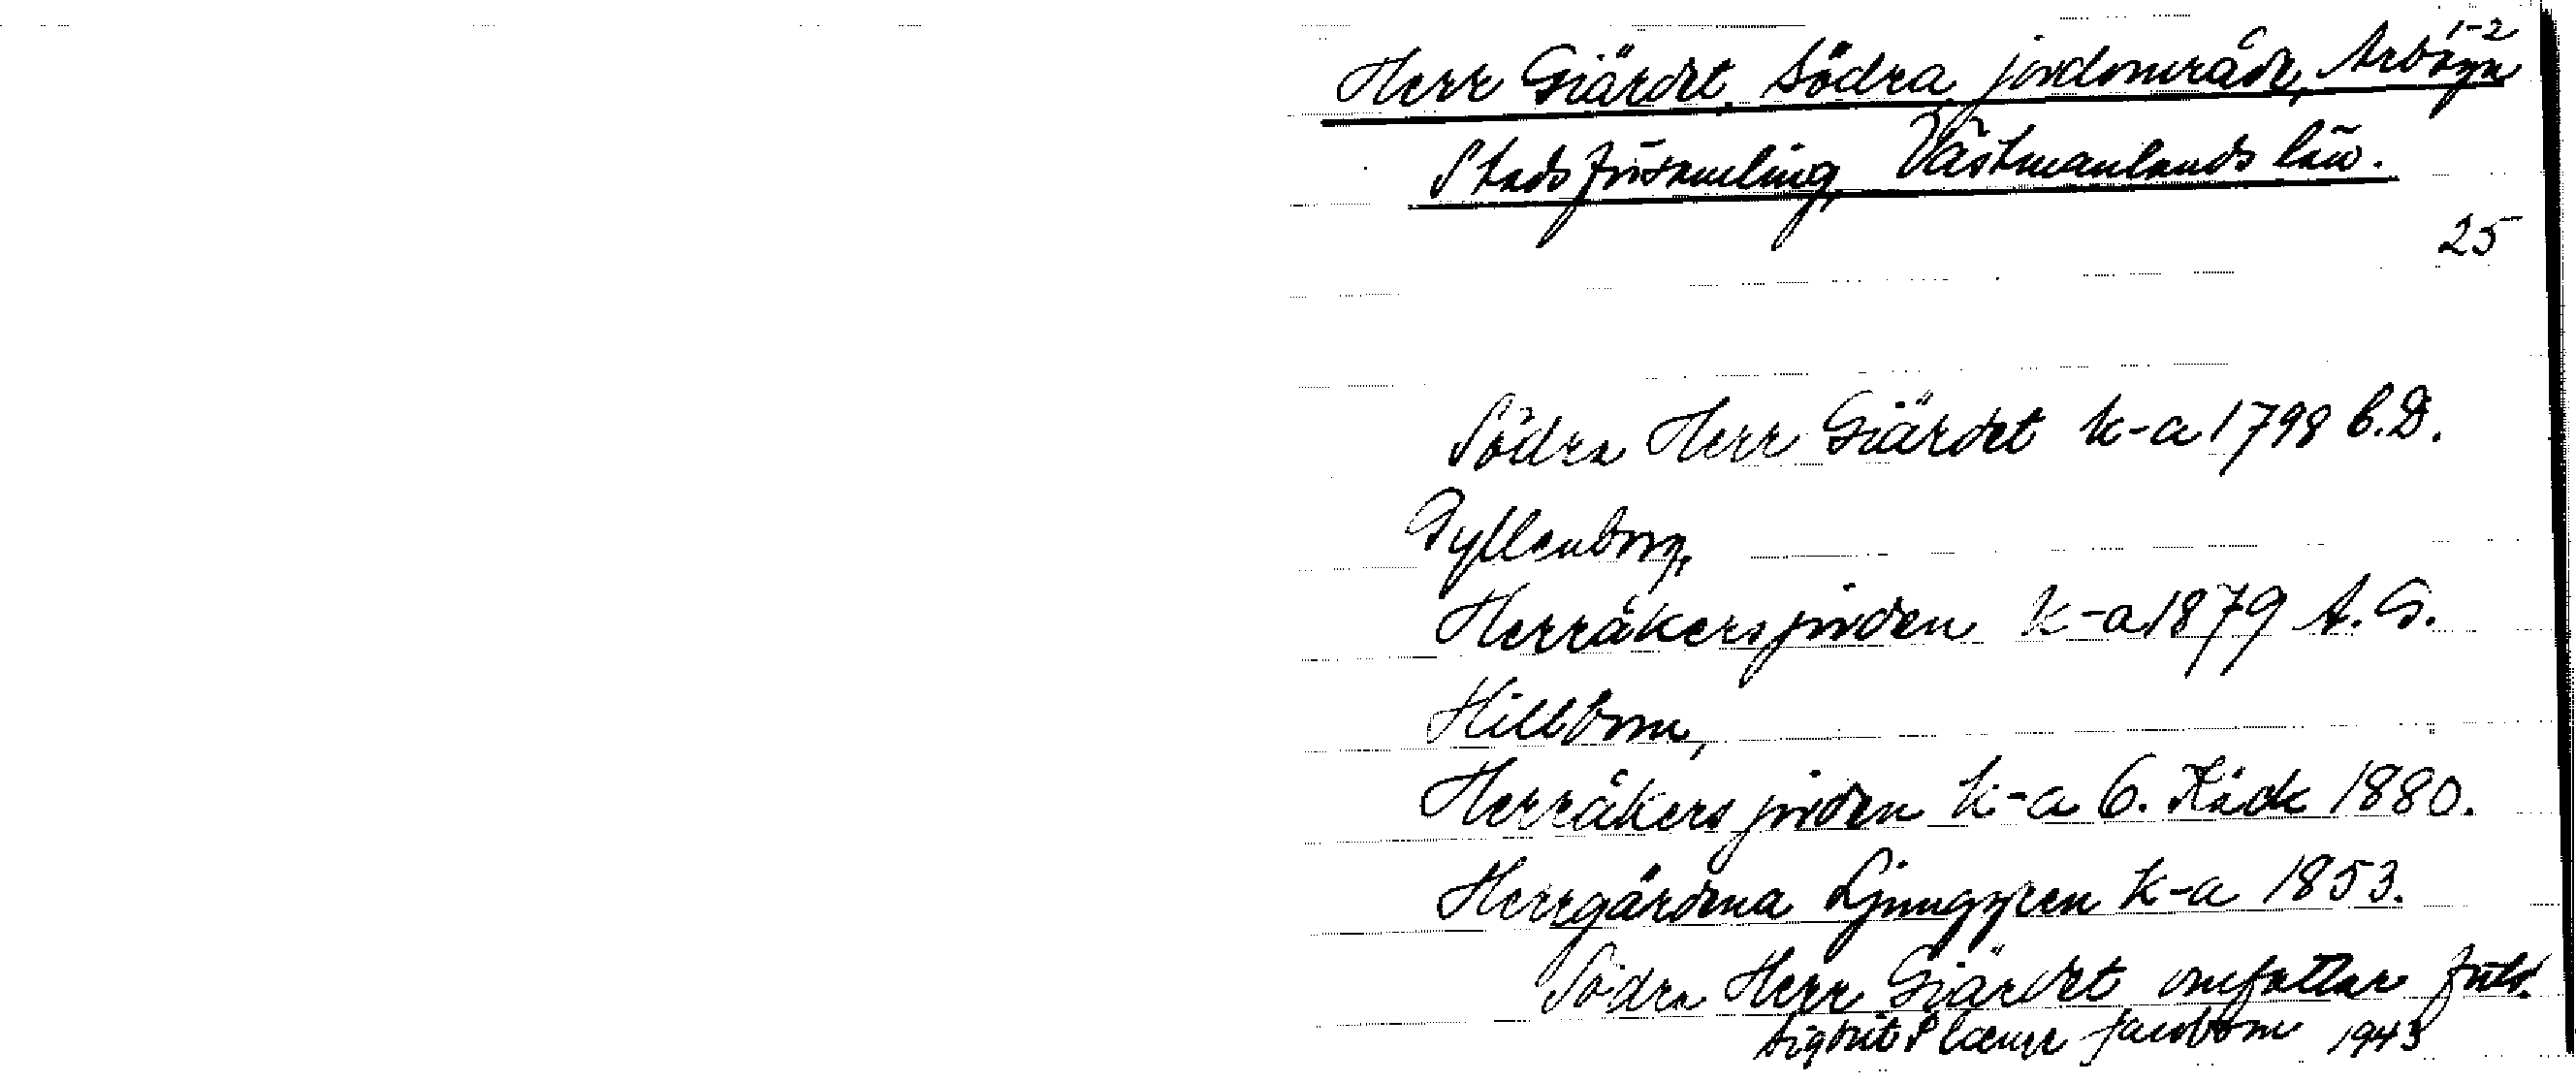 1-2
Herr Giärdet, Södra jordområde, Arboga
Stadsförsamling, Västmanlands län.
25
Södra Herr Giärdet k-a 1798 C.D.
Gyllenborg,
Herråkersjorden k-a 1879 A.G.
Hillbom,
Herråkersjorden k-a C. Käck 1880.
Herrgärdena Ljunggren k-a 1853.
Södra Herr Giärdet omfattar
Jacobson 1943